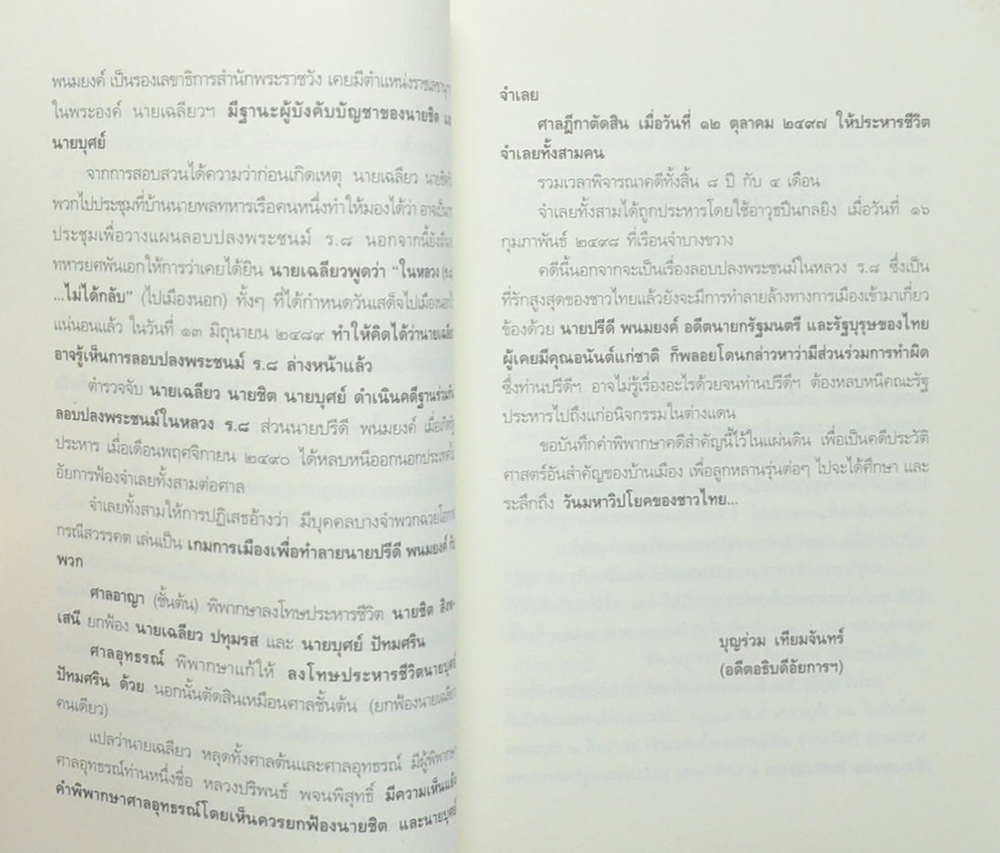 พนมยงค์ เป็นรองเลขาธิการสำนักพระราชวัง เคยมีตำแหน่งราชเลขานุการ
ในพระองค์ นายเฉลียวฯ มีฐานะผู้บังคับบัญชาของนายชิต และ
นายบุศย์
จากการสอบสวนได้ความว่าก่อนเกิดเหตุ นายเฉลียว นายชิต
พวกไปประชุมที่บ้านนายพลทหารเรือคนหนึ่งทำให้มองได้ว่า อาจเป็นการ
ประชุมเพื่อวางแผนลอบปลงพระชนม์ ร.๘ นอกจากนี้ยัง
ทหารยศพันเอกให้การว่าเคยได้ยิน นายเฉลียวพูดว่า "ในหลวง (ร.๘
...ไม่ได้กลับ" (ไปเมืองนอก) ทั้งๆ ที่ได้กำหนดวันเสด็จไปเมืองนอกไว้
แน่นอนแล้ว ในวันที่ ๑๓ มิถุนายน ๒๔๘๙ ทำให้คิดได้ว่านายเฉลียว
อาจรู้เห็นการลอบปลงพระชนม์ ร.๘ ล่างหน้าแล้ว
ตำรวจจับ นายเฉลียว นายชิต นายบุศย์ ดำเนินคดีฐานร่วมกัน
ลอบปลงพระชนม์ในหลวง ร.๘ ส่วนนายปรีดี พนมยงค์ เมื่อเกิด
ประหาร เมื่อเดือนพฤศจิกายน ๒๔๙๐ ได้หลบหนีออกนอกประเทศไป
อัยการฟ้องจำเลยทั้งสามต่อศาล
จำเลยทั้งสามให้การปฏิเสธอ้างว่า มีบุคคลบางจำพวกฉวยโอกาส
กรณีสวรรคต เล่นเป็น เกมการเมืองเพื่อทำลายนายปรีดี พนมยงค์ กับ
พวก
ศาลอาญา (ชั้นต้น) พิพากษาลงโทษประหารชีวิต นายชิต สิงห-
เสนี ยกฟ้อง นายเฉลียว ปทุมรส และ นายบุศย์ ปัทมศริน
ศาลอุทธรณ์ พิพากษาแก้ให้ ลงโทษประหารชีวิตนายบุศย์
ปัทมศริน ด้วย นอกนั้นตัดสินเหมือนศาลชั้นต้น (ยกฟ้องนายเฉลียว
คนเดียว)
แปลว่านายเฉลียว หลุดทั้งศาลต้นและศาลอุทธรณ์ มีผู้พิพากษา
ศาลอุทธรณ์ท่านหนึ่งชื่อ หลวงปริพนธ์ พจนพิสุทธิ์ มีความเห็นแย้ง
คำพิพากษาศาลอุทธรณ์โดยเห็นควรยกฟ้องนายชิต และนายบุศย์
จำเลย
ศาลฎีกาตัดสิน เมื่อวันที่ ๑๒ ตุลาคม ๒๔๙๗ ให้ประหารชีวิต
จำเลยทั้งสามคน
รวมเวลาพิจารณาคดีทั้งสิ้น ๘ ปี กับ ๔ เดือน
จำเลยทั้งสามได้ถูกประหารโดยใช้อาวุธปืนกลยิง เมื่อวันที่ ๑๖
กุมภาพันธ์ ๒๔๙๘ ที่เรือนจำบางขวาง
คดีนี้นอกจากจะเป็นเรื่องลอบปลงพระชนม์ในหลวง ร.๘ ซึ่งเป็น
ที่รักสูงสุดของชาวไทยแล้วยังจะมีการทำลายล้างทางการเมืองเข้ามาเกี่ยว
ข้องด้วย นายปรีดี พนมยงค์ อดีตนายกรัฐมนตรี และรัฐบุรุษของไทย
ผู้เคยมีคุณอนันต์แก่ชาติ ก็พลอยโดนกล่าวหาว่ามีส่วนร่วมการทำผิด
ซึ่งท่านปรีดีฯ อาจไม่รู้เรื่องอะไรด้วยจนท่านปรีดีฯ ต้องหลบหนีคณะรัฐ
ประหารไปถึงแก่อนิจกรรมในต่างแดน
ขอบันทึกคำพิพากษาคดีสำคัญนี้ไว้ในแผ่นดิน เพื่อเป็นคดีประวัติ
ศาสตร์อันสำคัญของบ้านเมือง เพื่อลูกหลานรุ่นต่อๆ ไปจะได้ศึกษา และ
ระลึกถึง วันมหาวิปโยคของชาวไทย...
บุญร่วม เทียมจันทร์
(อดีตอธิบดีอัยการฯ)